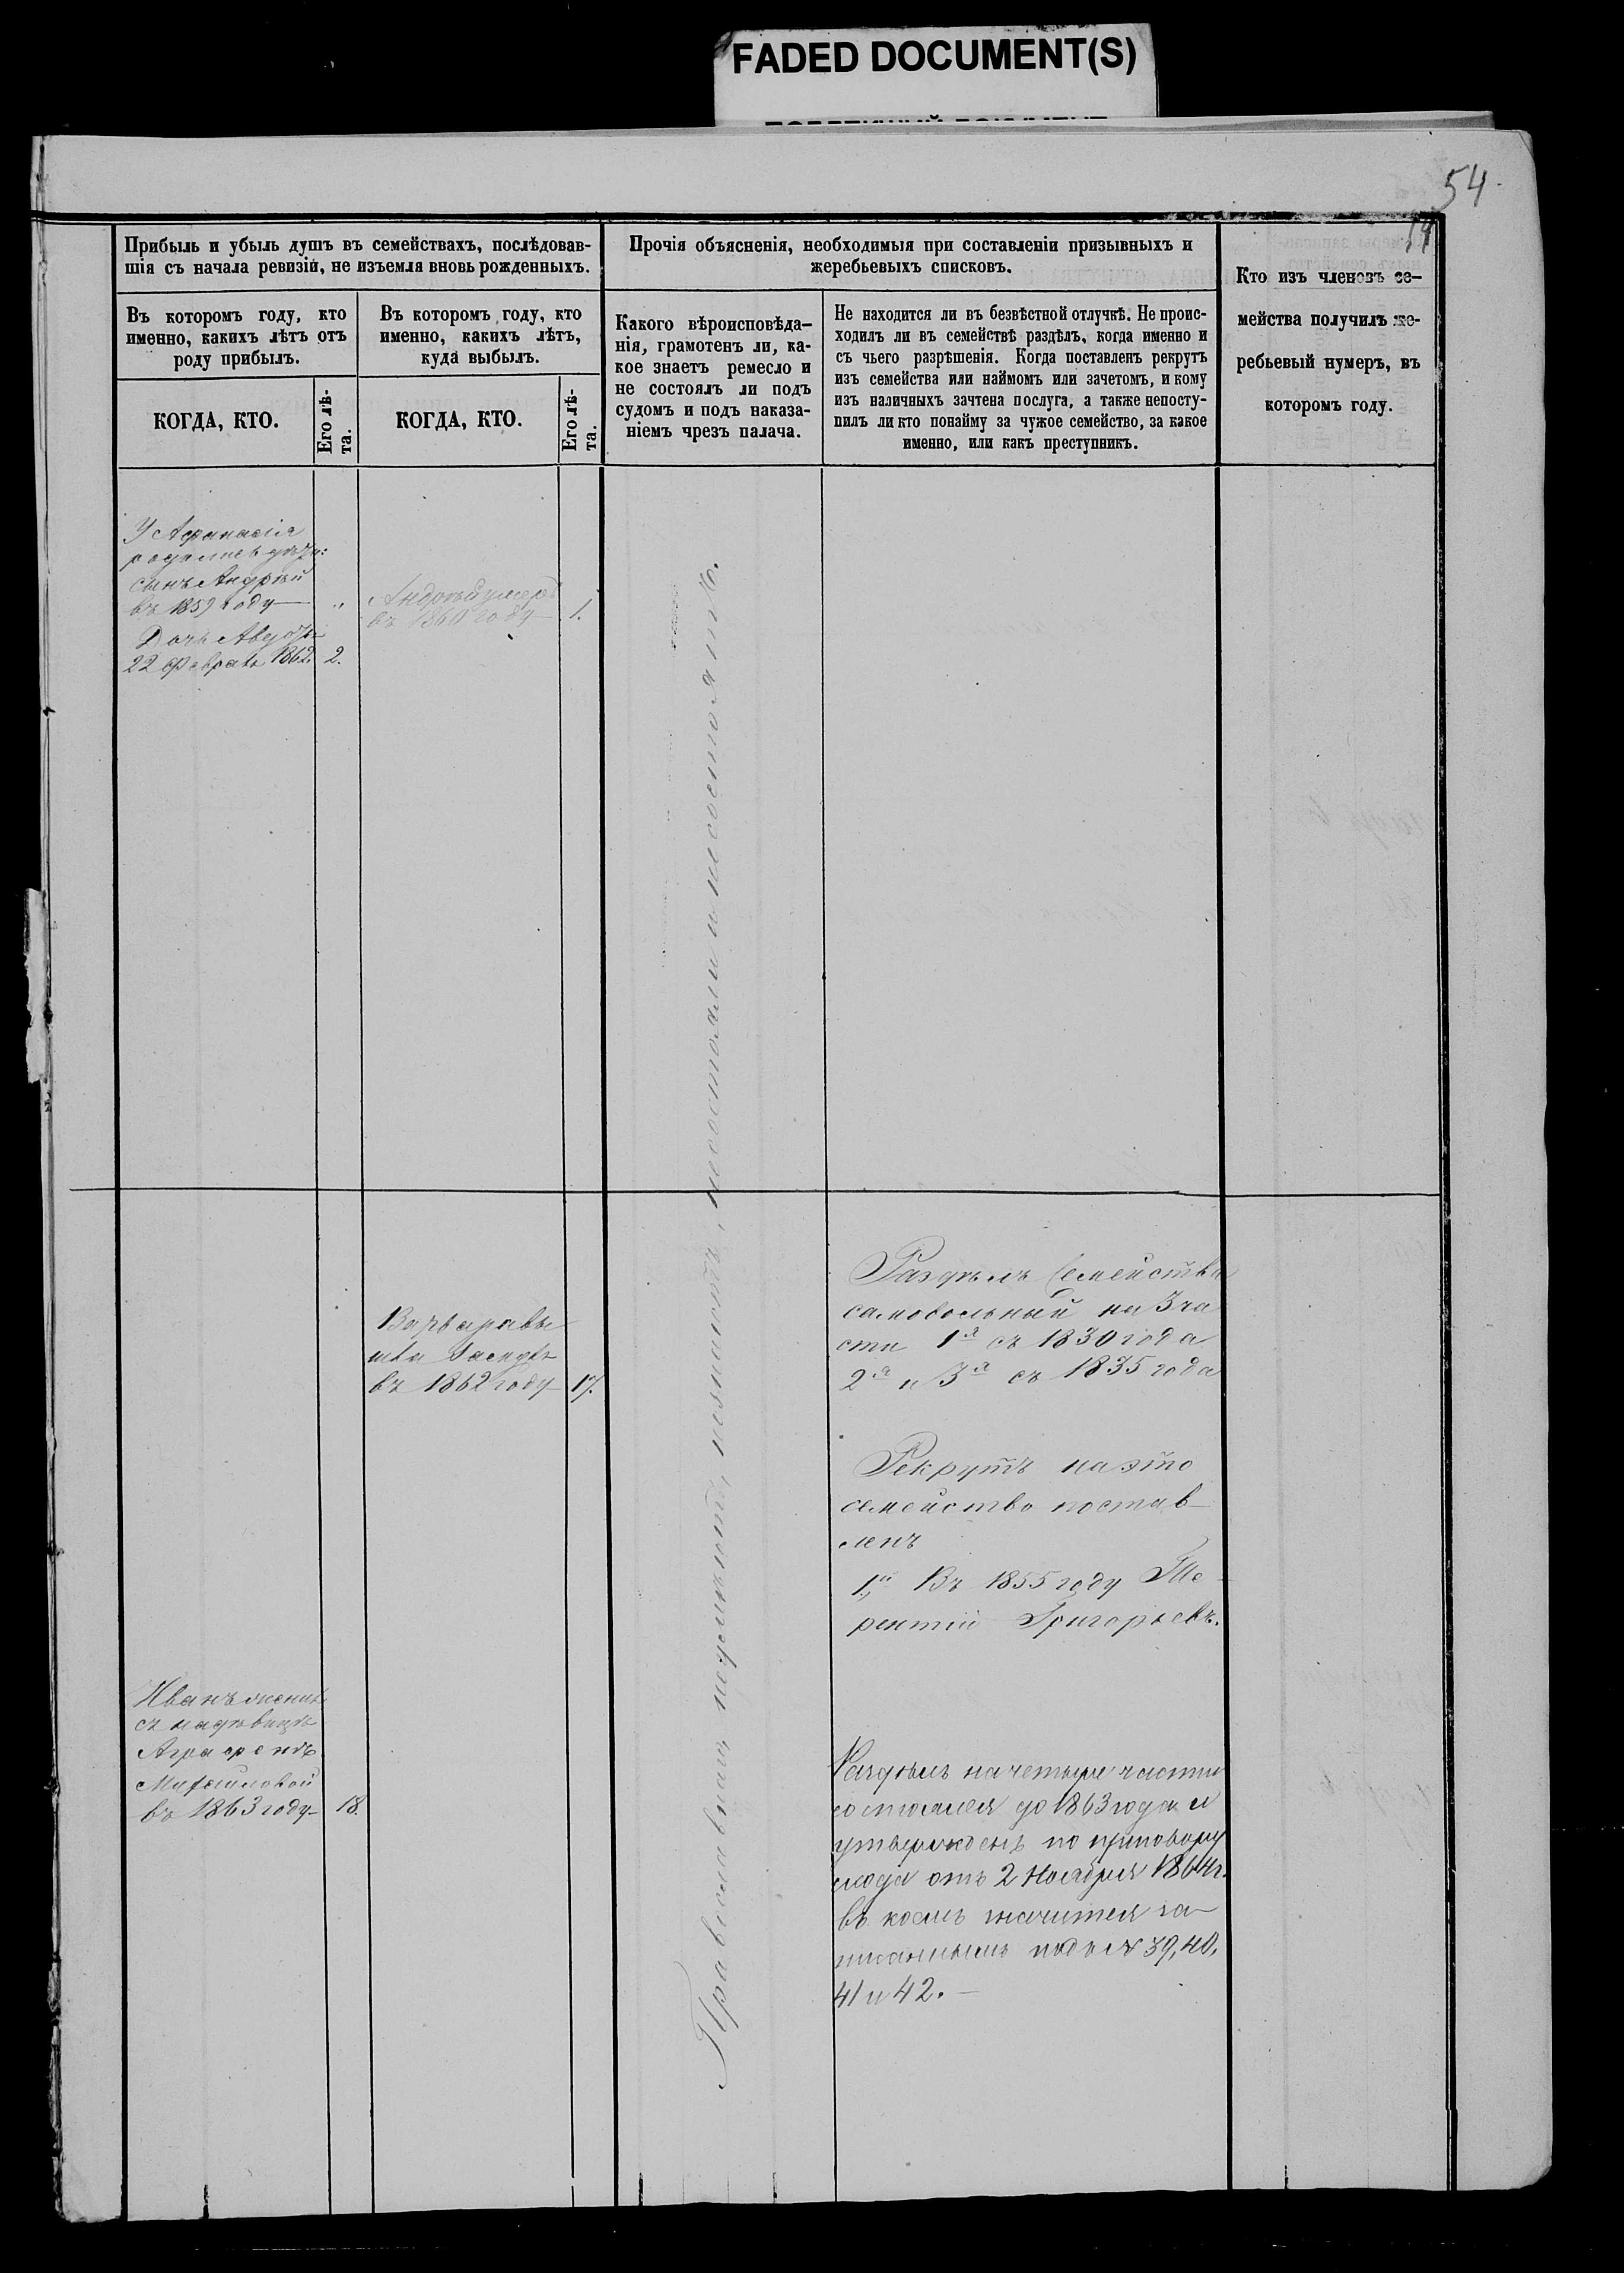 FADED DOCUMENT(S)
54.
54
Прибыль и убыль душъ въ семействахъ, послѣдовав-
шія съ начала ревизій, не изъемля вновь рожденныхъ.
Въ которомъ году, кто
именно, какихъ лѣтъ отъ
роду прибылъ.
КОГДА, КТО.
Его лѣ-
та.
Въ которомъ году, кто
именно, какихъ лѣтъ,
куда выбылъ.
КОГДА, КТО.
Его лѣ-
та.
Прочія объясненія, необходимыя при составленіи призывныхъ и
жеребьевыхъ списковъ.
Какого вѣроисповѣда-
нія, грамотенъ ли, ка-
кое знаетъ ремесло и
не состоялъ ли подъ
судомъ и подъ наказа-
ніемъ чрезъ палача.
Не находится ли въ безвѣстной отлучкѣ. Не проис-
ходилъ ли въ семействѣ раздѣлъ, когда именно и
съ чьего разрѣшенія. Когда поставленъ рекрутъ
изъ семейства или наймомъ или зачетомъ, и кому
изъ наличныхъ зачтена послуга, а также непосту-
пилъ ли кто понайму за чужое семейство, за какое
именно, или какъ преступникъ.
Кто изъ членовъ се-
мейства получилъ же-
ребьевый нумеръ, въ
которомъ году.
У Афанасія
родились дѣти:
сынъ Андрѣй
въ 1859 году — „
Дочь
22 Февраля 1862. 2.
Андрѣй умеръ
въ 1860 году — 1.
Варвара вы
шла
въ 1862 году — 17.
Иванъ женил
съ на дѣвицѣ
Аграфенѣ
Михайловой
въ 1863 году — 18.
Православныя, неумѣютъ, незнаютъ, несостояли и несостоятъ.
Раздѣлъ Семейства
самовольный на 3 ча
сти 1я съ 1830 года
2я и 3я съ 1835 года
Рекрутъ на это
семейство постав-
ленъ
1й Въ 1855 году Те-
рентій Григорьевъ.
Раздѣлъ на четыре части
состоялся до 1863 года и
утвержденъ по приговору
схода отъ 2 Ноября 1864 г.
въ коемъ значится за-
писаннымъ подъ № 39, 40,
41 и 42. —